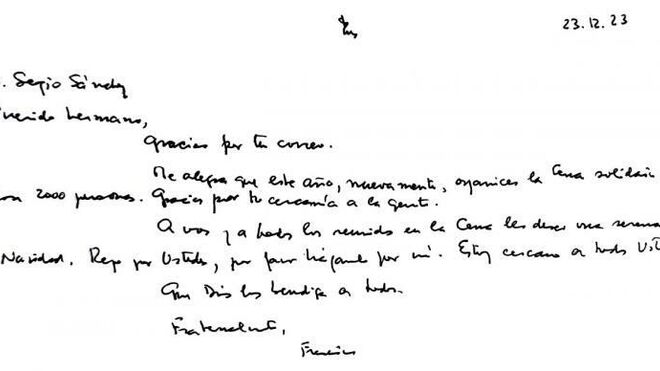 23.12.23
. Sergio Sánchez
uerido hermano,
Gracias por tu correo.
Me alegra que este año, nuevamente, organices la Cena solidari
2000 personas. Gracias por tu cercanía a la gente.
A vos y a todos los reunido en la Cena les deseo una serena
Navidad. Rezo por Ustedes, por favor háganlo por mí. Estoy cercano a todos Uste
Que Dios los bendiga a todos.
Fraternalmente,
Francisco